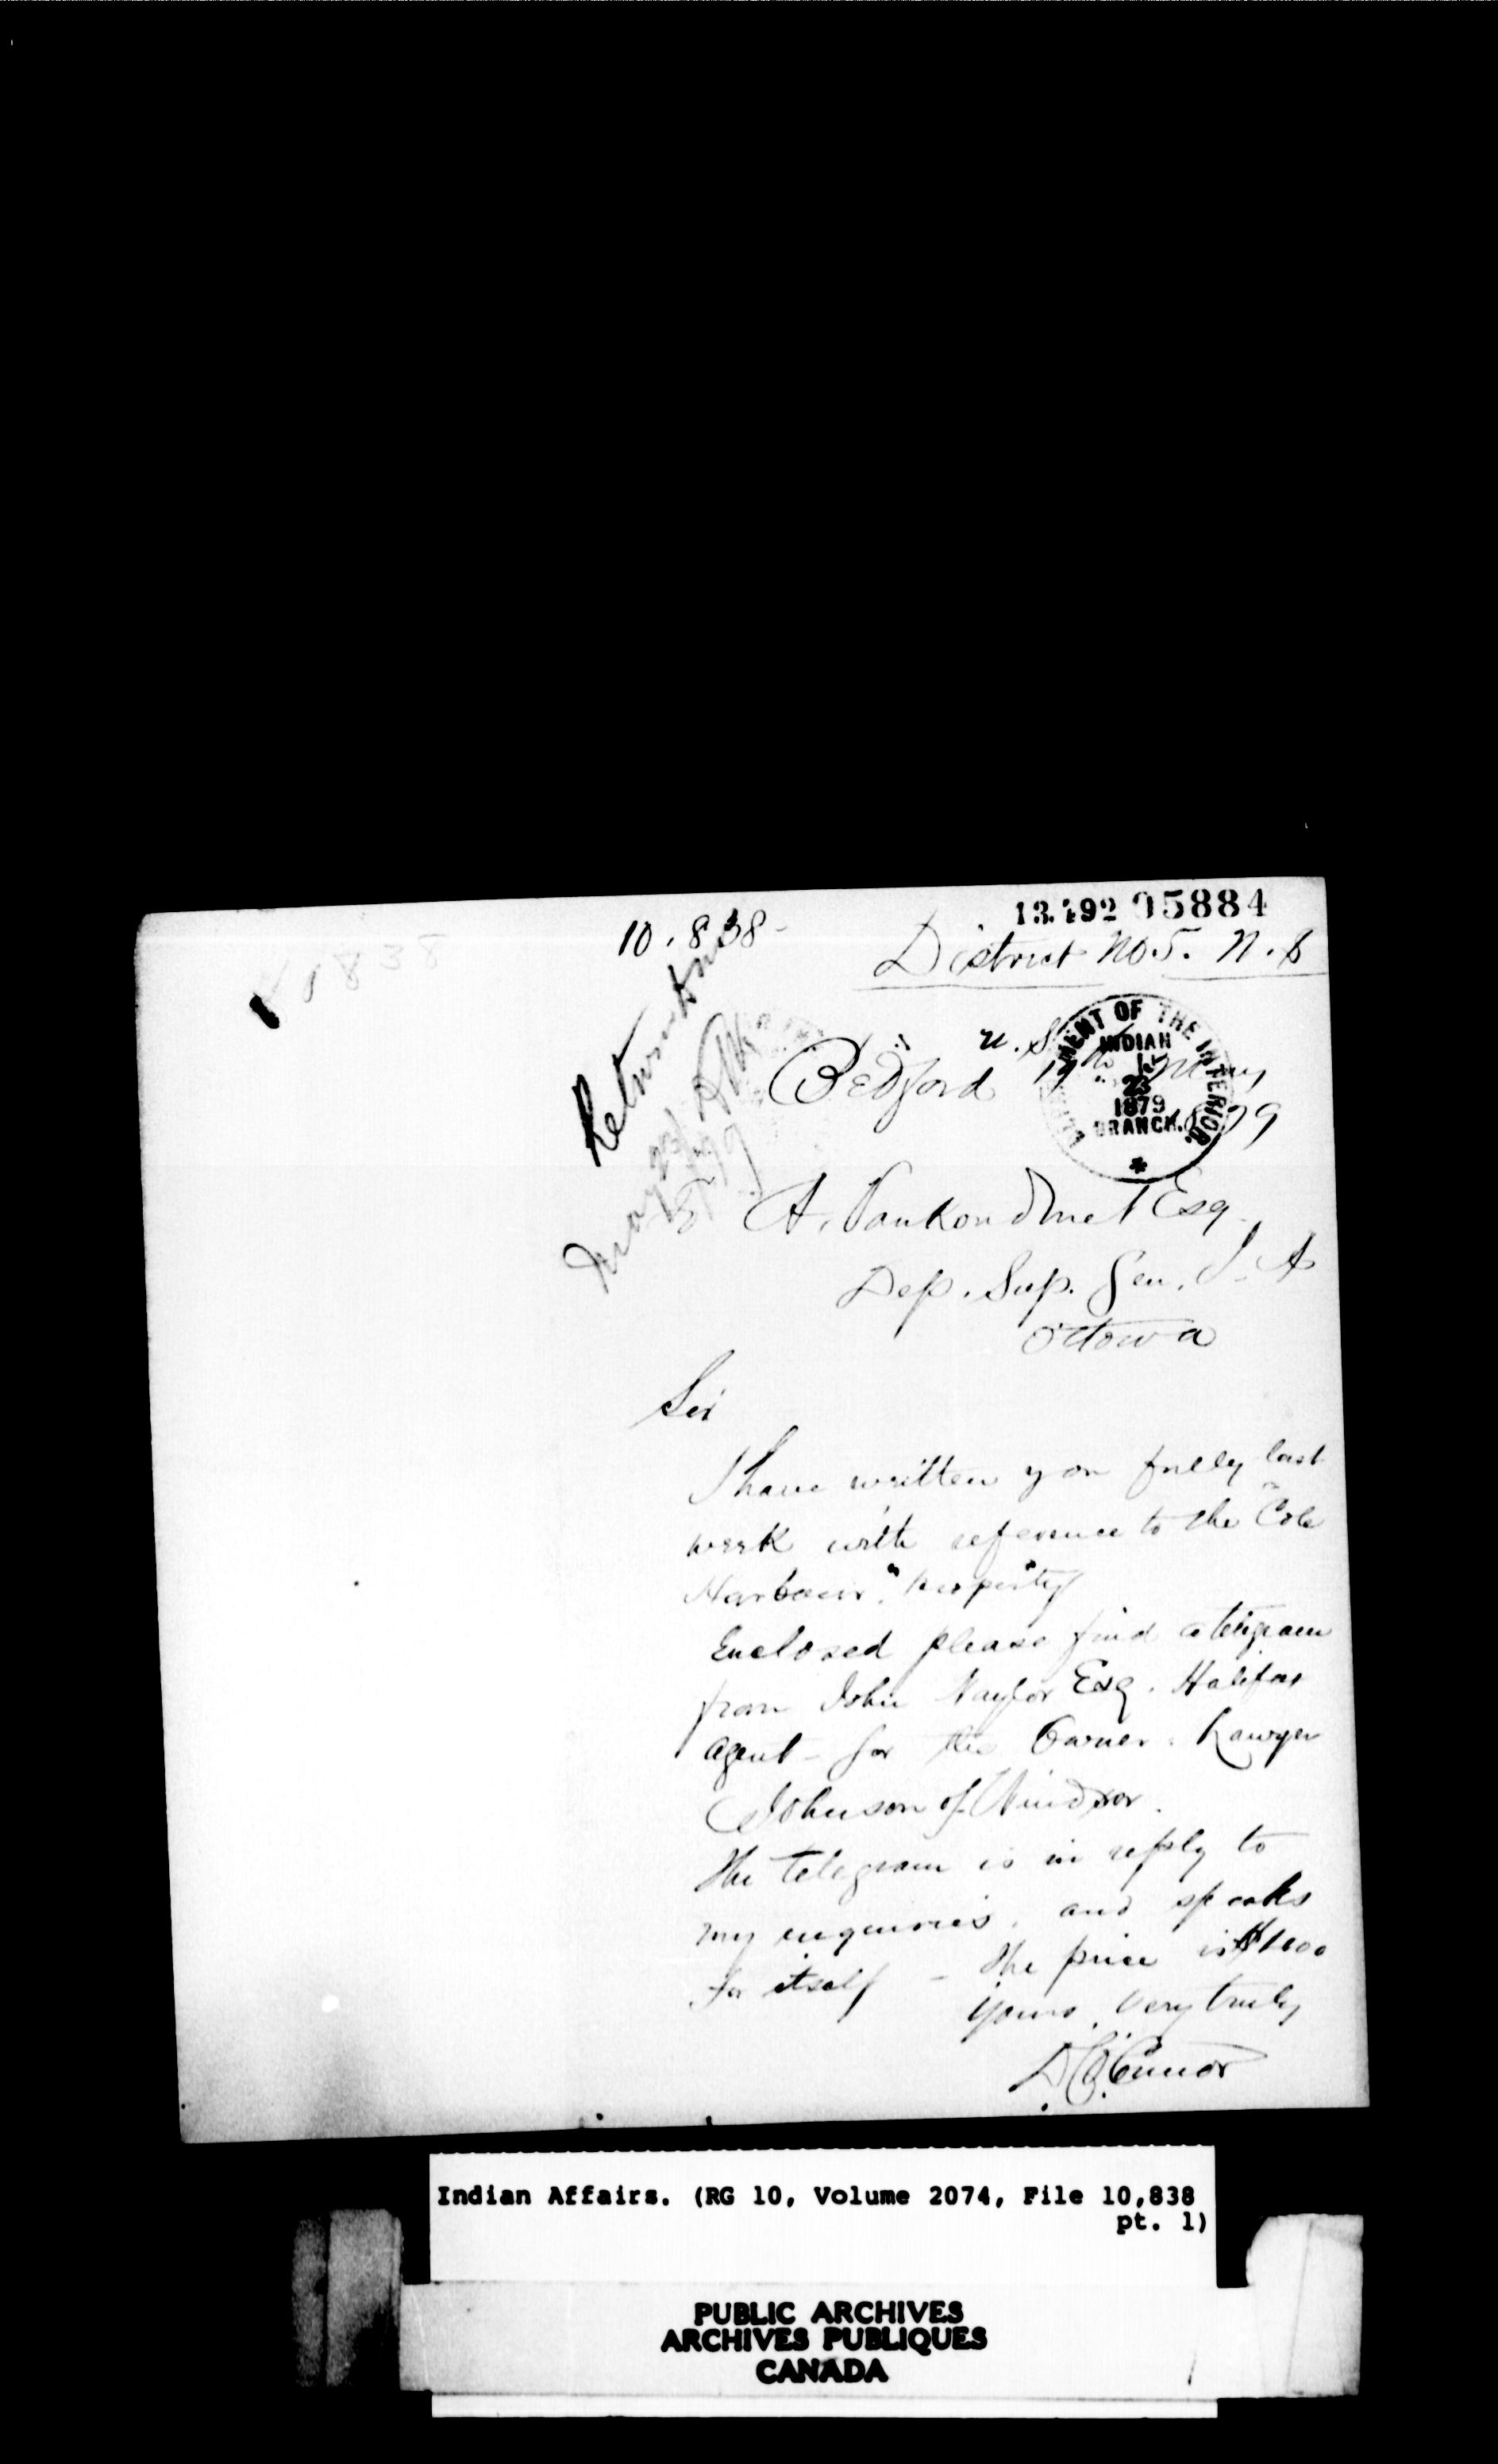 13.492 05884
10.838-
District No 5. N.S
10838
Returned
May 23/79
N.S.
Bedford 17th May
1879
DEPARTMENT OF THE INTERIOR
INDIAN
23
1879
BRANCH.
A. Vankoughnet Esq
Dep. Sup. Gen. I. A
Ottowa
Sir
I have written you fully last
week with reference to the "Cole
Harbour" property
Enclosed please find a telegram
from John Naylor Esq. Halifax
agent for the Owner. Lawyer
Johnson of Windsor.
The telegram is in reply to
my enquiries, and speaks
for itself - The price is $1000
Yours very truly
D. O'Connor
Indian Affairs. (RG 10, Volume 2074, File 10,838
pt. 1)
PUBLIC ARCHIVES
ARCHIVES PUBLIQUES
CANADA